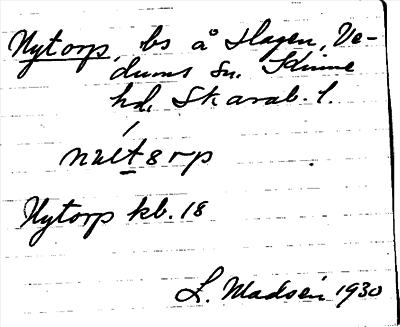 Nytorp, bs å Hagen, Ve-
dums sn. Kinne
hd, Skarab. l.
Nytorp kb. 18
L. Madsén 1930